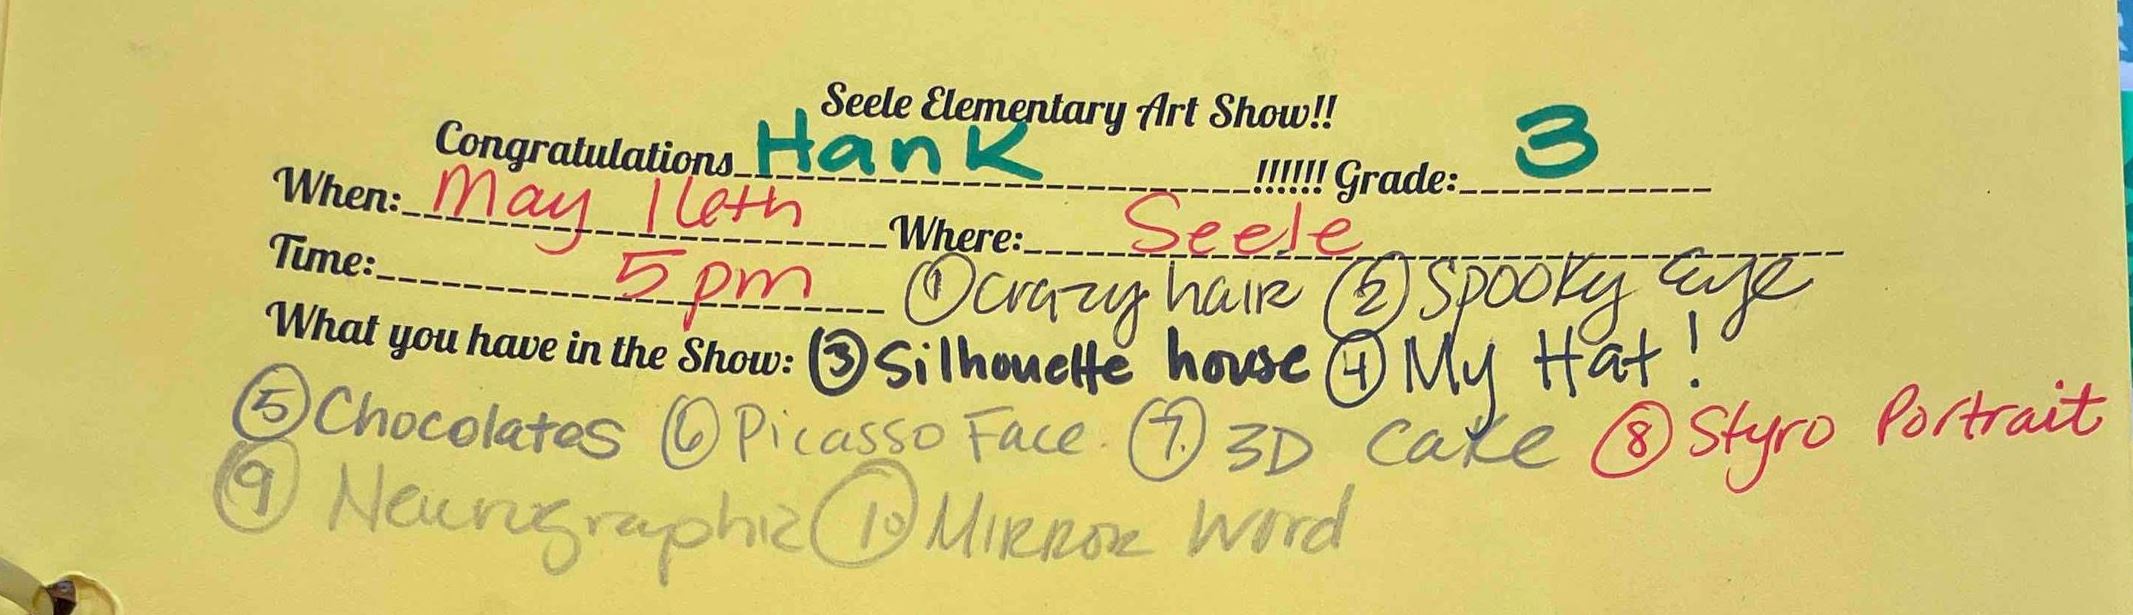 Seele Elementary Art Show!!
Congratulations Hank !!!!!! Grade: 3
When: May 16th Where: Seele
Time: 5 pm ① Crazy hair ② Spooky Eye
What you have in the Show: ③ Silhouette house ④ My Hat!
⑤ Chocolates ⑥ Picasso Face. ⑦ 3D Cake ⑧ Styro Portrait
⑨ Neurographic ⑩ Mirror Word